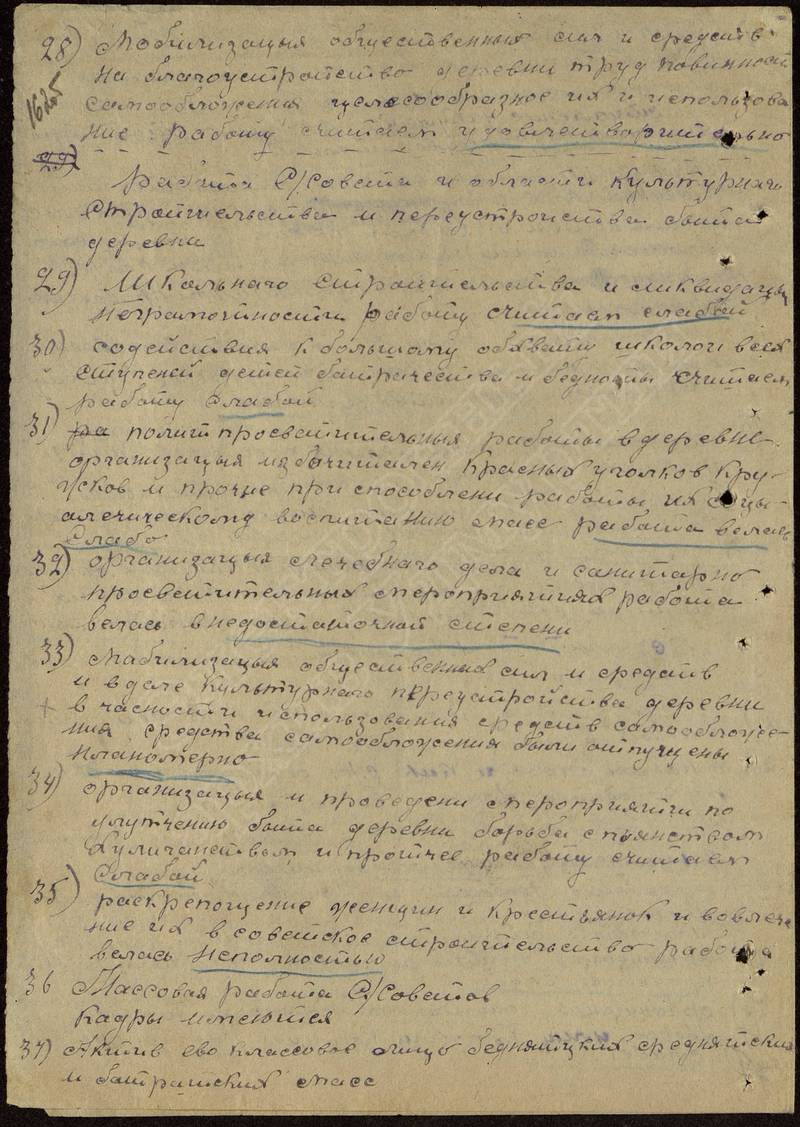 28) Мобилизацыя общественных сил и средств
на благоустроиство деревни труд повинност
самообложения целесообразное их и использова
ние работу считаем удовлетворительно
1625
29)
Работа С/Совета и области культурнаго
строительства и переустроиства быта
деревни
29) Школьнаго строительства и ликвидацыи
неграмотности работу считаем слабой
30) содействия к большому обхвату школои всех
ступеней детей батрачества и бедноты считаем
работу слабой
31) ра политпросветительныя работы в деревне
организацыя изб читален красных уголков кру-
жков и прочие приспособлени работы их соцы-
алическому воспитанию масс работа велась
слабо
32) организацыя лечебнаго дела и санитарно
просветительных мероприятиях работа
велась в недостаточной степени
33) Мабилизацыя общественных сил и средств
и в деле культурнаго переустройства деревни
в часности использования средств самообложе-
ния средства самообложения были отпущены
планомерно
34) организацыя и проведени мероприятии по
улутчению быта деревни борьба с пьянством
хулиганством и протчее работу считаем
слабой
35) раскрепощение женщин и крестьянок и вовлече
ние их в советское строительство работа
велась неполностью
36 Массовая работа С/Советов
кадры имеются
37) Актив ево классовое лицо бедняцких средняцких
и батрацких масс